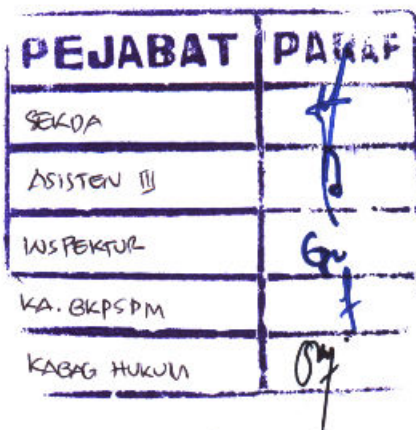 PEJABAT PARAF
SEKDA
ASISTEN III
INSPEKTUR
KA. BKPSPM
KABAG HUKUM